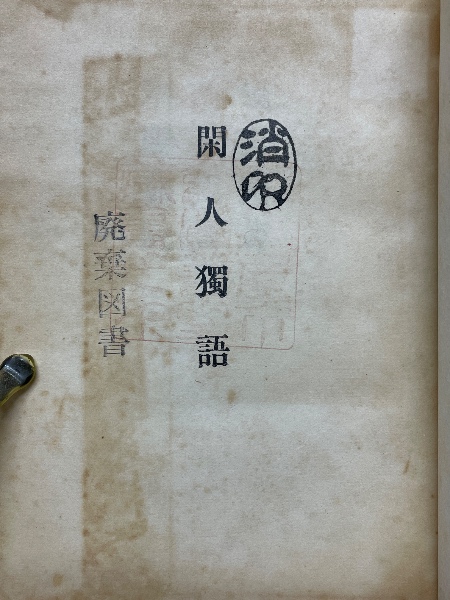 消印
閑人獨語
廃棄図書